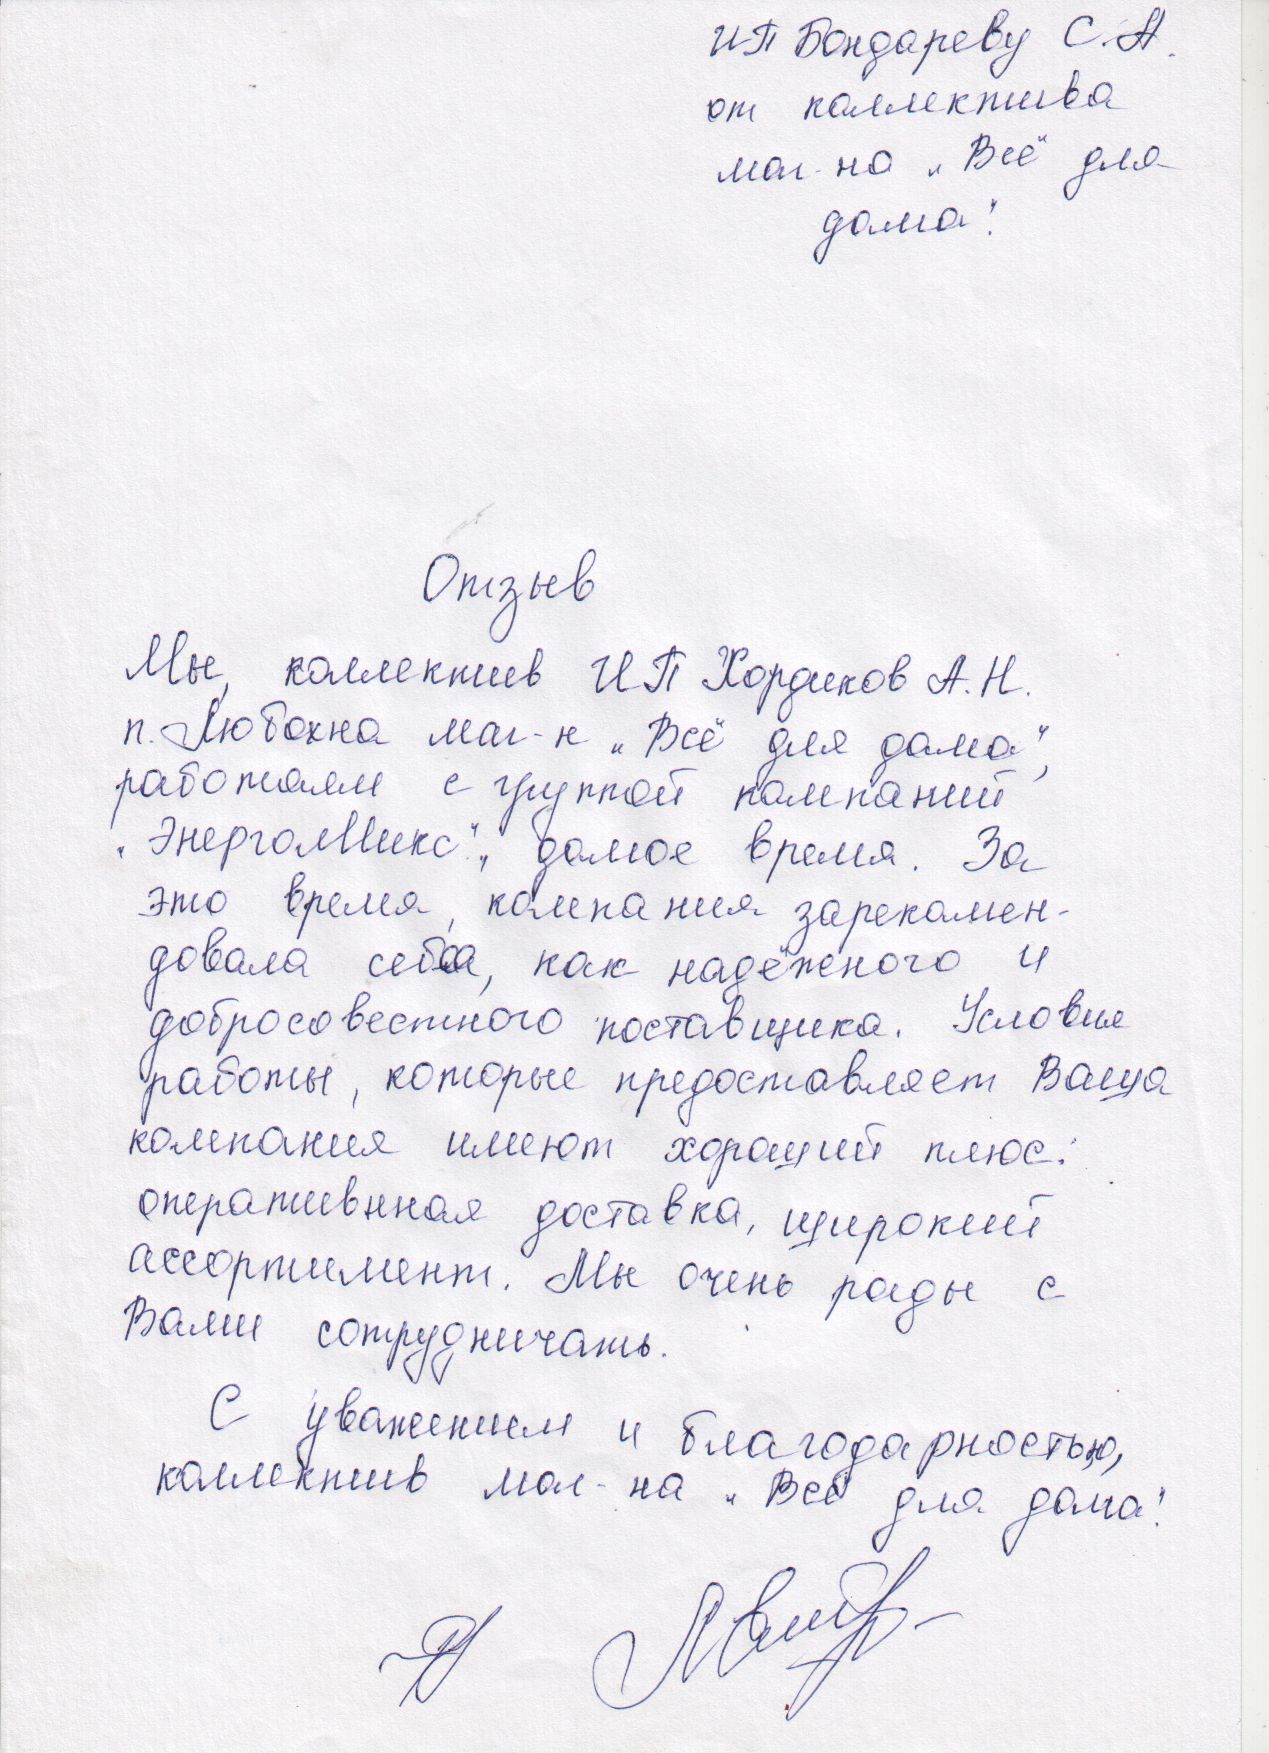 ИП Бондареву С.А.
от коллектива
маг-на „Всё для
дома".
Отзыв
Мы, коллектив ИП Хордиков А.Н.
п. Любохна маг-н „Всё для дома",
работаем с группой компаний
„ЭнергоМикс", долгое время. За
это время, компания зарекомен-
довала себя, как надёжного и
добросовестного поставщика. Условия
работы, которые предоставляет Ваша
компания имеют хороший плюс:
оперативнная доставка, широкий
ассортимент. Мы очень рады с
Вами сотрудничать.
С уважением и благодарностью,
коллектив маг-на „Всё для дома".